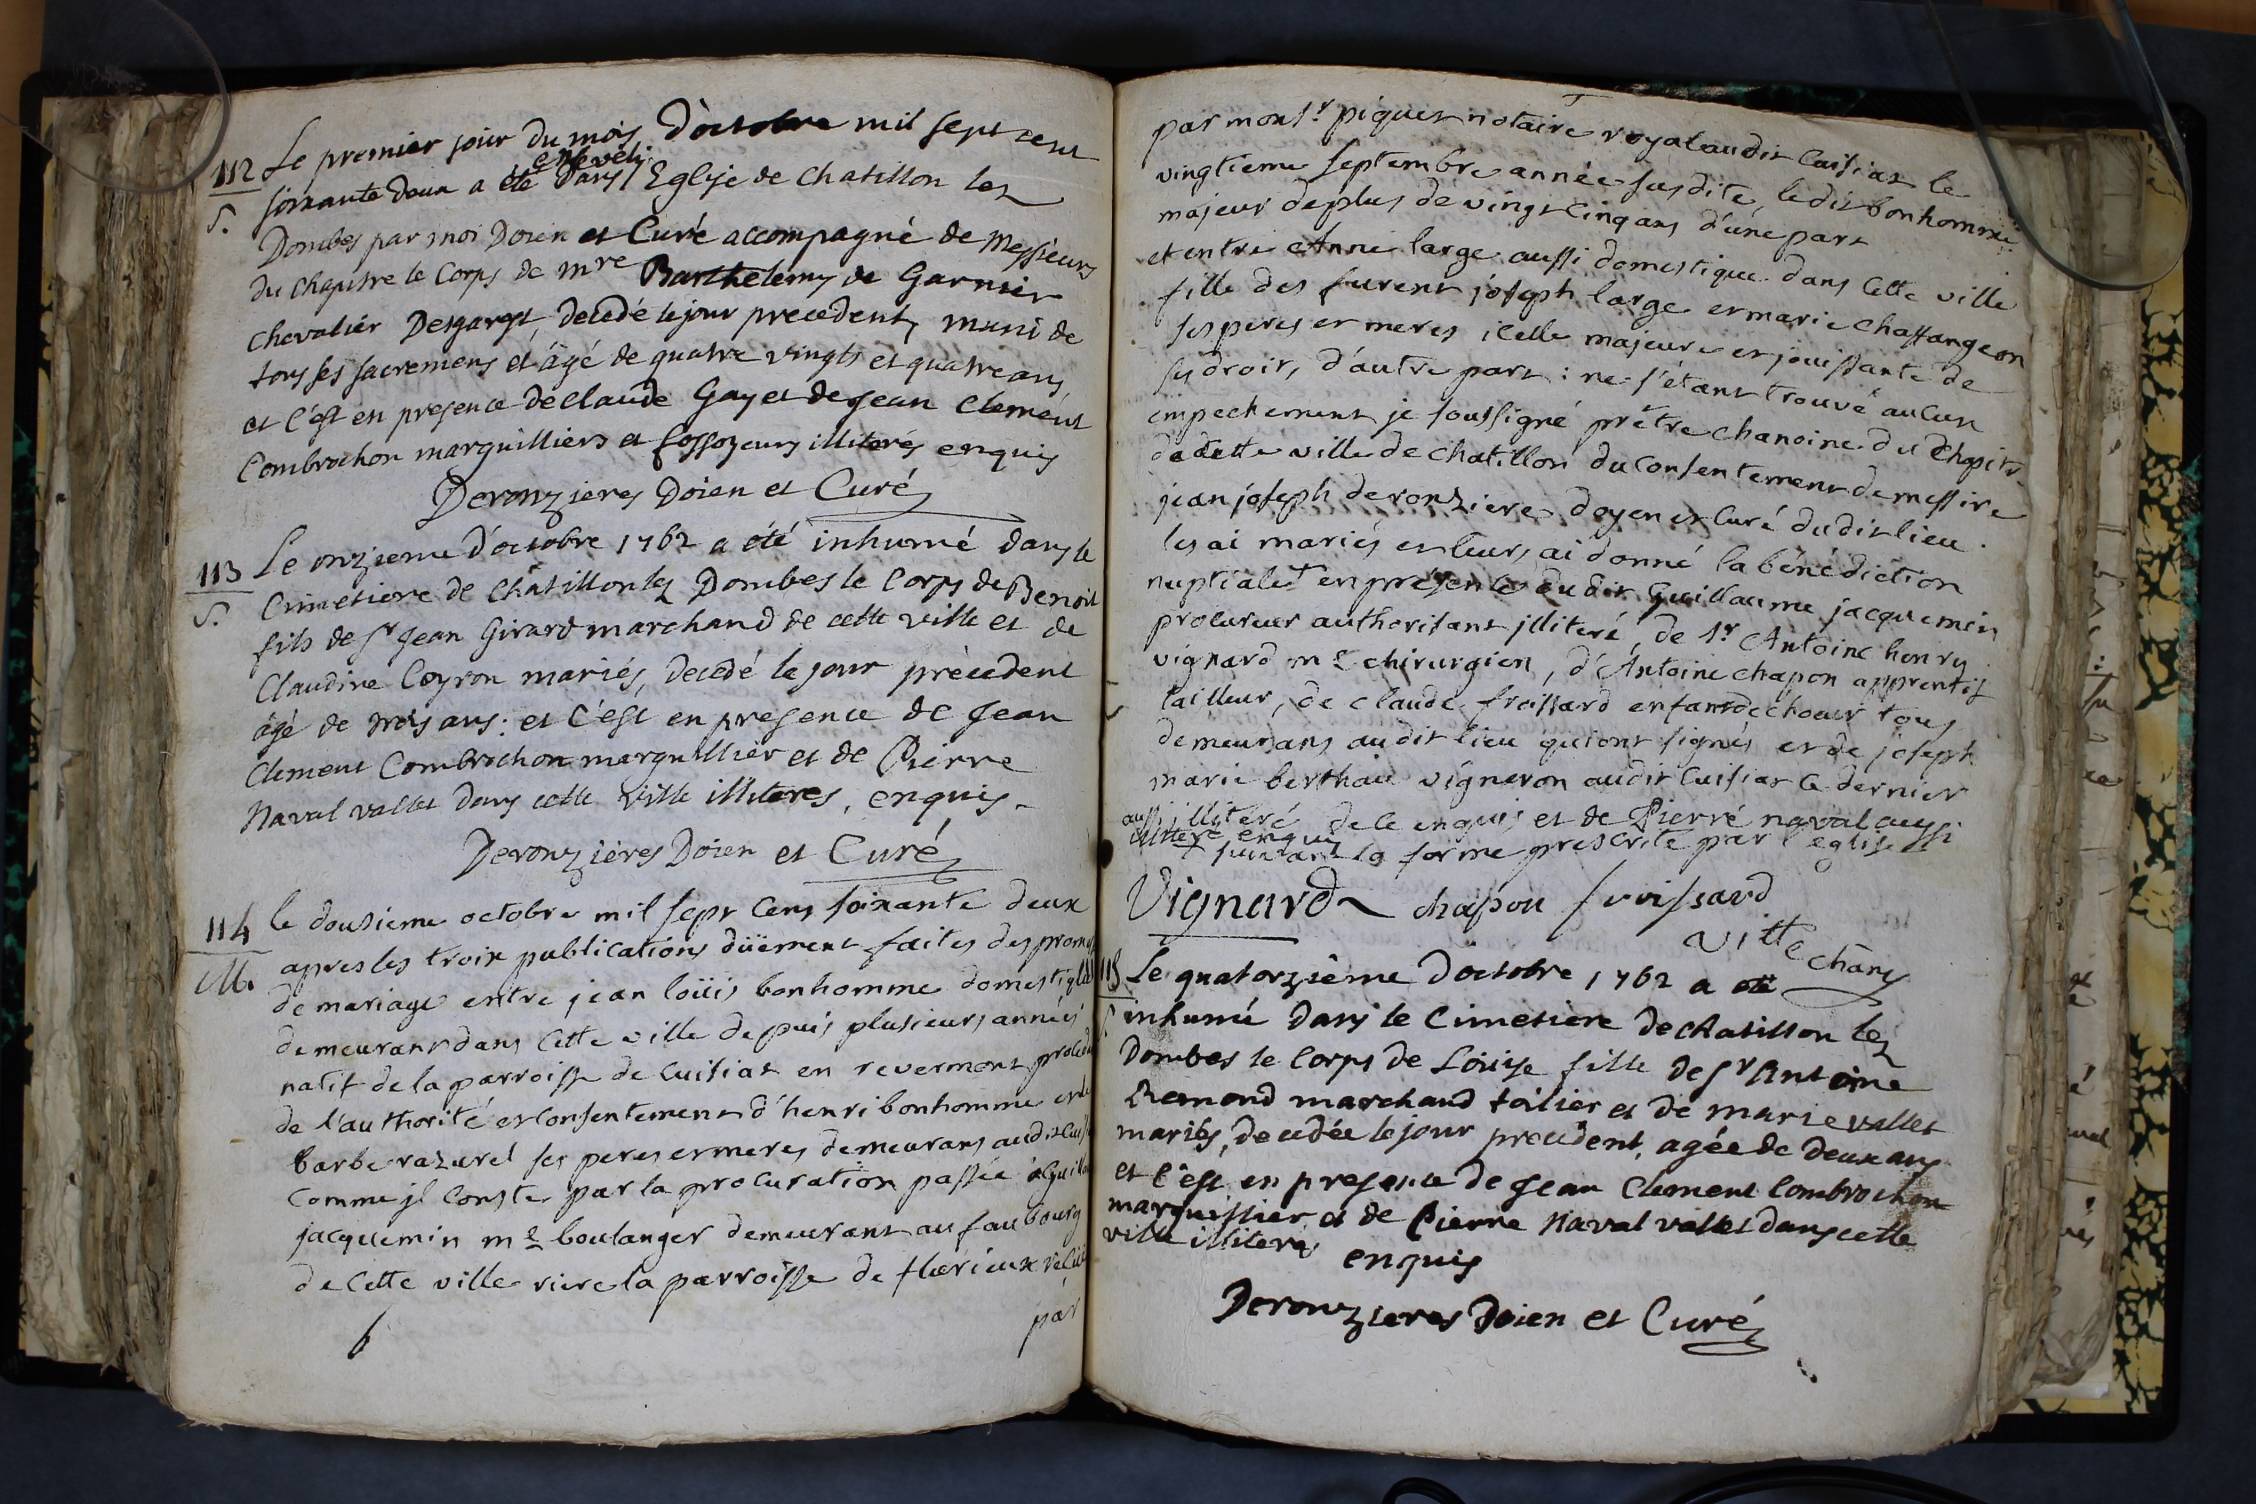 112 Le premier jour du mois d'octobre mil sept cent
enseveli
S. soixante deux a été dans l'Eglise de Chatillon les
Dombes par moi Doien et Curé accompagné de Messieurs
du Chapitre le Corps de mre Barthelemy de Garnier
chevalier Desgarets, decedé le jour precedent, muni de
tous ses sacremens et âgé de quatre vingts et quatre ans
et c'est en presence de Claude Gay et de Jean Clement
Combrochon marguilliers et fossoyeurs illiterés enquis
Deronzieres Doien et Curé
113 Le onzieme d'octobre 1762 a été inhumé dans le
S. Cimetiere de Châtillon les Dombes le Corps de Benoit
fils de Sr Jean Girard marchand de cette ville et de
Claudine Coyron mariés, decedé le jour précedent
âgé de trois ans : et c'est en presence de Jean
Clement Combrochon marguillier et de Pierre
Naval vallet dans cette ville illiteres, enquis -
Deronzières Doien et Curé
114 le dousieme octobre mil sept cens soixante deux
M. apres les troix publications düement faites des prom
de mariage entre jean loüis bonhomme domestique
demeurant dans cette ville depuis plusieurs années
natif de la parroisse de Cuisiat en revermont proced
de l'authorité et consentement d'henri bonhomme et de
barbe razurel ses peres et meres demeurans audit Cuisi
comme jl conste par la procuration passée à Guilla
jacquemin me boulanger demeurant au faubourg
de cette ville rière la parroisse de flœrieux
par
par monsr. piquet notaire royal audit Cuisiat le
vingtieme septembre année susdite, le dit bonhomme
majeur de plus de vingt cinq ans d'une part
et entre Anne large aussi domestique dans cette ville
fille des furent joseph large et marie chassangeon
ses peres et meres icelle majeure et jouissante de
ses droit, d'autre part : ne s'étant trouvé aucun
empechement je soussigné prêtre chanoine du Chapitre
de cette ville de chatillon du consentement de messire
jean joseph deronziere doyen et curé dudit lieu
les ai mariés et leurs ai donné la bénédiction
nuptiale + en présence dudit Guillaume jacquemin
procureur authorisant jlliteré, de sr. Antoine henry
vignard me chirurgien, d'Antoine chapon apprentif
tailleur, de claude froissard enfant de choeur tous
demeurans audit lieu qui ont signés et de joseph
marie berthair vigneron audit Cuisiat ce dernier
aussi jlliteré de ce enquis et de Pierre naval aussi
illiteré enquis
+ suivant la forme prescrite par l'église
Vignard chapon froissard
Vitte chane
115 Le quatorzième d'octobre 1762 a été
S. inhumé dans le Cimetiere de chatillon les
Dombes le Corps de Loüise fille de Sr Antoine
Remond marchand toilier et de marie vallet
mariés, decedée le jour precedent, agée de deux ans
et c'est en presence de Jean Clement Combrochon
marguillier et de Pierre Naval vallet dans cette
ville illiterés enquis
Deronzieres Doien et Curé